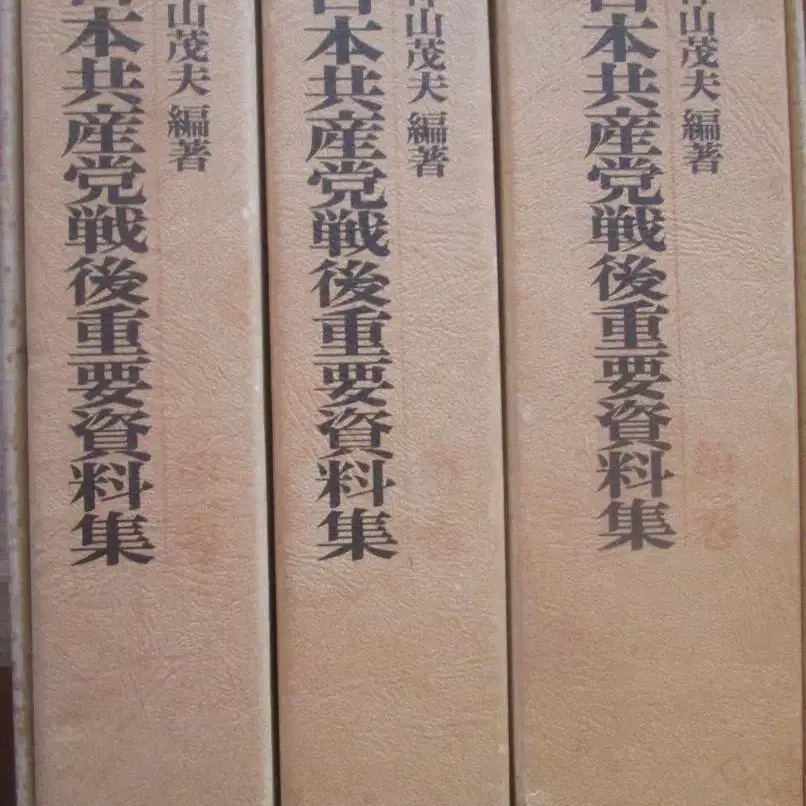 山茂夫 編著
日本共産党戦後重要資料集
神山茂夫 編著
日本共産党戦後重要資料集
神山茂夫 編著
日本共産党戦後重要資料集